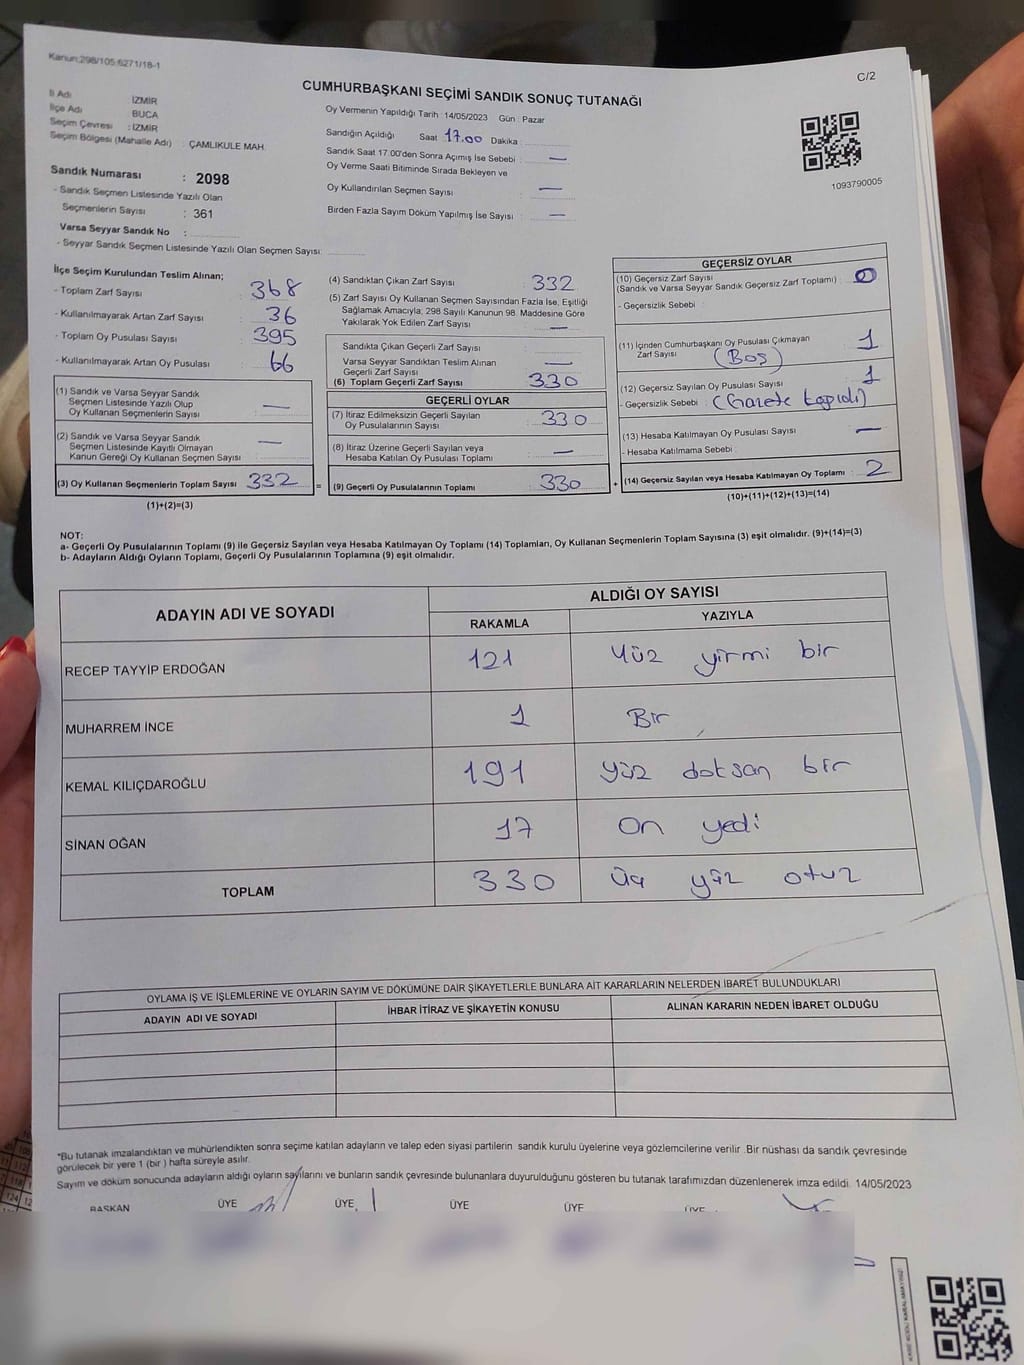 Kanun:298/105:6271/18-1
C/2
CUMHURBAŞKANI SEÇİMİ SANDIK SONUÇ TUTANAĞI
İl Adı : İZMİR
İlçe Adı : BUCA
Seçim Çevresi : İZMİR
Seçim Bölgesi (Mahalle Adı) : ÇAMLIKULE MAH.
Oy Vermenin Yapıldığı Tarih : 14/05/2023 Gün : Pazar
Sandığın Açıldığı Saat 17.00 Dakika :
Sandık Saat 17.00'den Sonra Açımış İse Sebebi : —
Oy Verme Saati Bitiminde Sırada Bekleyen ve
Oy Kullandırılan Seçmen Sayısı : —
Birden Fazla Sayım Döküm Yapılmış İse Sayısı : —
1093790005
Sandık Numarası : 2098
- Sandık Seçmen Listesinde Yazılı Olan
Seçmenlerin Sayısı : 361
Varsa Seyyar Sandık No :
- Seyyar Sandık Seçmen Listesinde Yazılı Olan Seçmen Sayısı:
İlçe Seçim Kurulundan Teslim Alınan;
- Toplam Zarf Sayısı : 368
- Kullanılmayarak Artan Zarf Sayısı : 36
- Toplam Oy Pusulası Sayısı : 395
- Kullanılmayarak Artan Oy Pusulası : 66
(1) Sandık ve Varsa Seyyar Sandık
Seçmen Listesinde Yazılı Olup
Oy Kullanan Seçmenlerin Sayısı : —
(2) Sandık ve Varsa Seyyar Sandık
Seçmen Listesinde Kayıtlı Olmayan
Kanun Gereği Oy Kullanan Seçmen Sayısı : —
(3) Oy Kullanan Seçmenlerin Toplam Sayısı : 332 =
(1)+(2)=(3)
(4) Sandıktan Çıkan Zarf Sayısı : 332
(5) Zarf Sayısı Oy Kullanan Seçmen Sayısından Fazla İse, Eşitliği
Sağlamak Amacıyla; 298 Sayılı Kanunun 98. Maddesine Göre
Yakılarak Yok Edilen Zarf Sayısı : —
Sandıkta Çıkan Geçerli Zarf Sayısı :
Varsa Seyyar Sandıktan Teslim Alınan
Geçerli Zarf Sayısı : —
(6) Toplam Geçerli Zarf Sayısı : 330
GEÇERLİ OYLAR
(7) İtiraz Edilmeksizin Geçerli Sayılan
Oy Pusulalarının Sayısı : 330
(8) İtiraz Üzerine Geçerli Sayılan veya
Hesaba Katılan Oy Pusulası Toplamı : —
(9) Geçerli Oy Pusulalarının Toplamı : 330 +
GEÇERSİZ OYLAR
(10) Geçersiz Zarf Sayısı
(Sandık ve Varsa Seyyar Sandık Geçersiz Zarf Toplamı) : 0
- Geçersizlik Sebebi :
(11) İçinden Cumhurbaşkanı Oy Pusulası Çıkmayan
Zarf Sayısı (Boş) : 1
(12) Geçersiz Sayılan Oy Pusulası Sayısı : 1
- Geçersizlik Sebebi : (Gazete kağıdı)
(13) Hesaba Katılmayan Oy Pusulası Sayısı : —
- Hesaba Katılmama Sebebi :
(14) Geçersiz Sayılan veya Hesaba Katılmayan Oy Toplamı : 2
(10)+(11)+(12)+(13)=(14)
NOT:
a- Geçerli Oy Pusulalarının Toplamı (9) ile Geçersiz Sayılan veya Hesaba Katılmayan Oy Toplamı (14) Toplamları, Oy Kullanan Seçmenlerin Toplam Sayısına (3) eşit olmalıdır. (9)+(14)=(3)
b- Adayların Aldığı Oyların Toplamı, Geçerli Oy Pusulalarının Toplamına (9) eşit olmalıdır.
ADAYIN ADI VE SOYADI
ALDIĞI OY SAYISI
RAKAMLA YAZIYLA
RECEP TAYYİP ERDOĞAN 121 Yüz yirmi bir
MUHARREM İNCE 1 Bir
KEMAL KILIÇDAROĞLU 191 yüz doksan bir
SİNAN OĞAN 17 On yedi
TOPLAM 330 üç yüz otuz
OYLAMA İŞ VE İŞLEMLERİNE VE OYLARIN SAYIM VE DÖKÜMÜNE DAİR ŞİKAYETLERLE BUNLARA AİT KARARLARIN NELERDEN İBARET BULUNDUKLARI
ADAYIN ADI VE SOYADI İHBAR İTİRAZ VE ŞİKAYETİN KONUSU ALINAN KARARIN NEDEN İBARET OLDUĞU
*Bu tutanak imzalandıktan ve mühürlendikten sonra seçime katılan adayların ve talep eden siyasi partilerin sandık kurulu üyelerine veya gözlemcilerine verilir .Bir nüshası da sandık çevresinde
görülecek bir yere 1 (bir ) hafta süreyle asılır.
Sayım ve döküm sonucunda adayların aldığı oyların sayılarını ve bunların sandık çevresinde bulunanlara duyurulduğunu gösteren bu tutanak tarafımızdan düzenlenerek imza edildi. 14/05/2023
BAŞKAN ÜYE ÜYE ÜYE ÜYE ÜYE